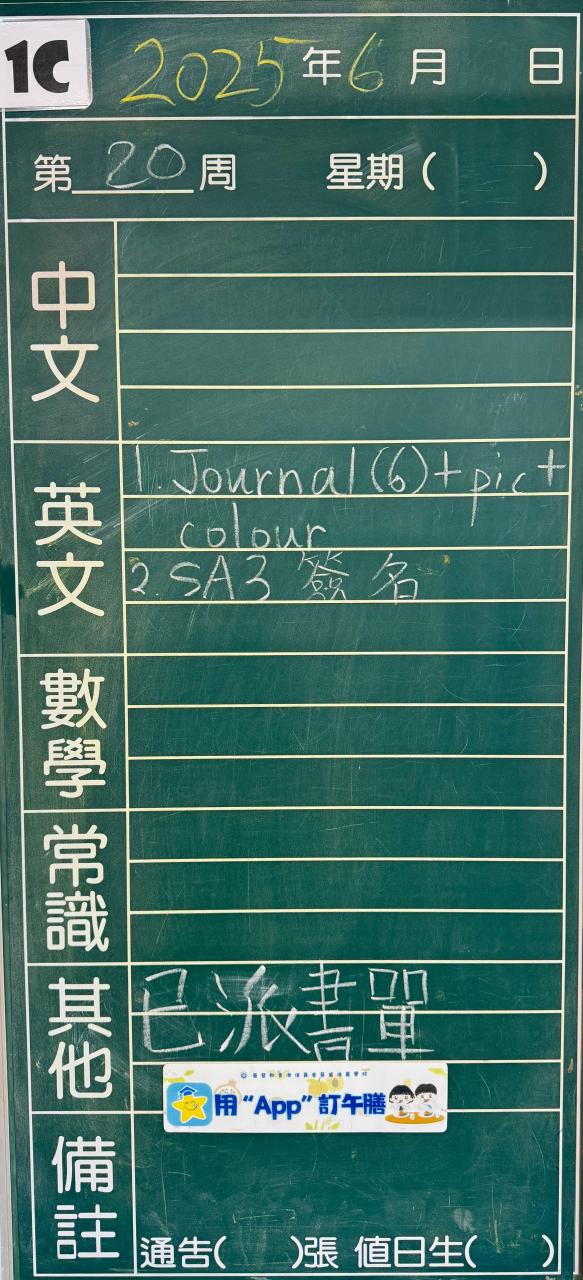 1C
2025年6月 日
第20周 星期( )
中文
英文
1. Journal(6)+pic+
colour
2. SA3 簽名
數學
常識
其他
已派書單
用“App”訂午膳
備註
通告( )張 值日生( )